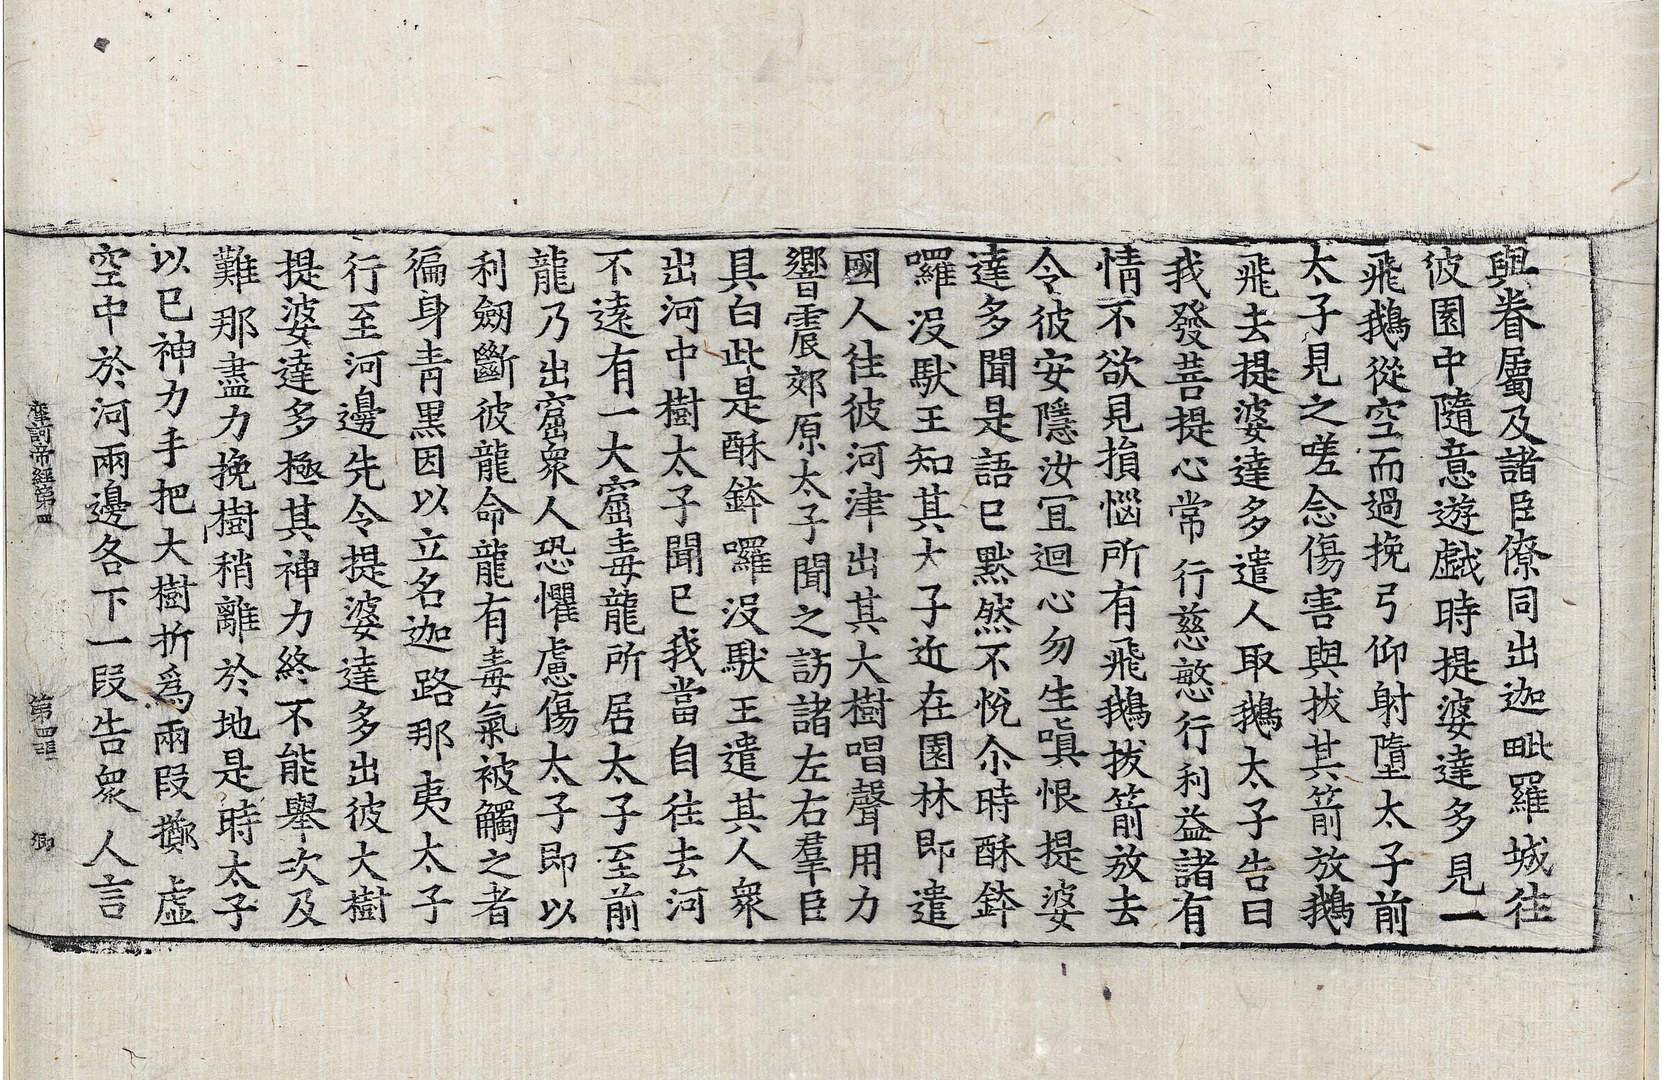 與眷屬及諸臣僚同出迦毗羅城往
彼園中隨意遊戲時提婆達多見一
飛鵝從空而過挽弓仰射墮太子前
太子見之嗟念傷害與拔其箭放鵝
飛去提婆達多遣人取鵝太子告曰
我發菩提心常行慈愍行利益諸有
情不欲見損惱所有飛鵝拔箭放去
令彼安隱汝冝迴心勿生嗔恨提婆
達多聞是語已默然不悅尒時酥鉢
囉沒馱王知其大子近在園林即遣
國人往彼河津出其大樹唱聲用力
響震郊原太子聞之訪諸左右羣臣
具白此是酥鉢囉沒馱王遣其人衆
出河中樹太子聞已我當自往去河
不遠有一大窟毒龍所居太子至前
龍乃出窟衆人恐懼慮傷太子即以
利劒斷彼龍命龍有毒氣被觸之者
徧身青黑因以立名迦路那夷太子
行至河邊先令提婆達多出彼大樹
提婆達多極其神力終不能舉次及
難那盡力挽樹稍離於地是時太子
以已神力手把大樹折爲兩段擲虛
空中於河兩邊各下一段告衆人言
摩訶帝經第四
第四